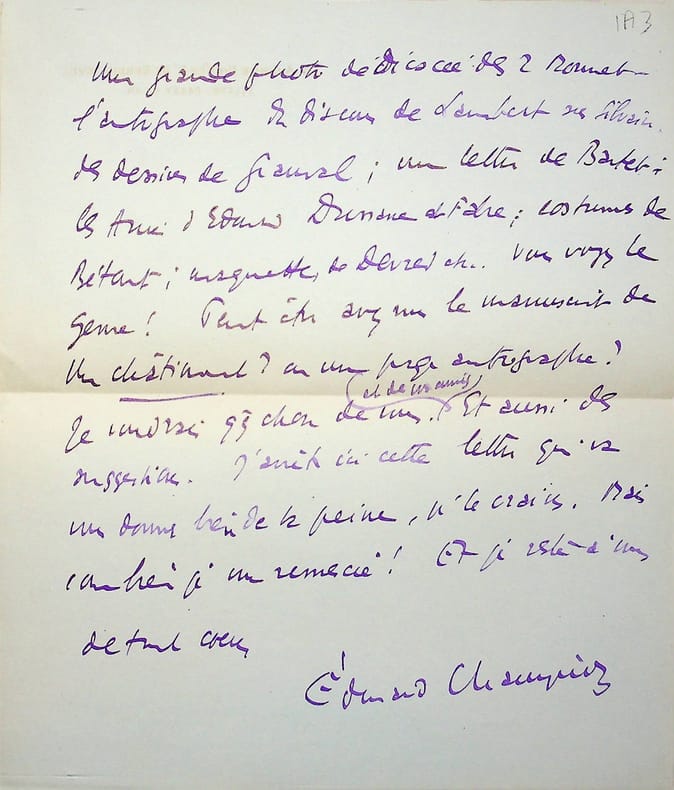 1A3
Une grande photo dédicacée des 2 Mounet
l'autographe du discours de Lambert sur Silvain,
des dessins de Granval ; une lettre de Bartet ;
les Amis d'Edouard Dussane et Fabre ; costumes de
Bétout ; maquettes de Devred etc.. Vous voyez le
genre ! Peut être avez vous le manuscrit de
Un châtiment ? ou une page autographe ?
Je voudrais qq chose de vous. (et de vos amis) Et aussi des
suggestions. J'arrête ici cette lettre qui va
vous donner bien de la peine, je le crains. Mais
combien je vous remercie ! Et je reste à vous
de tout coeur
Édouard Champion